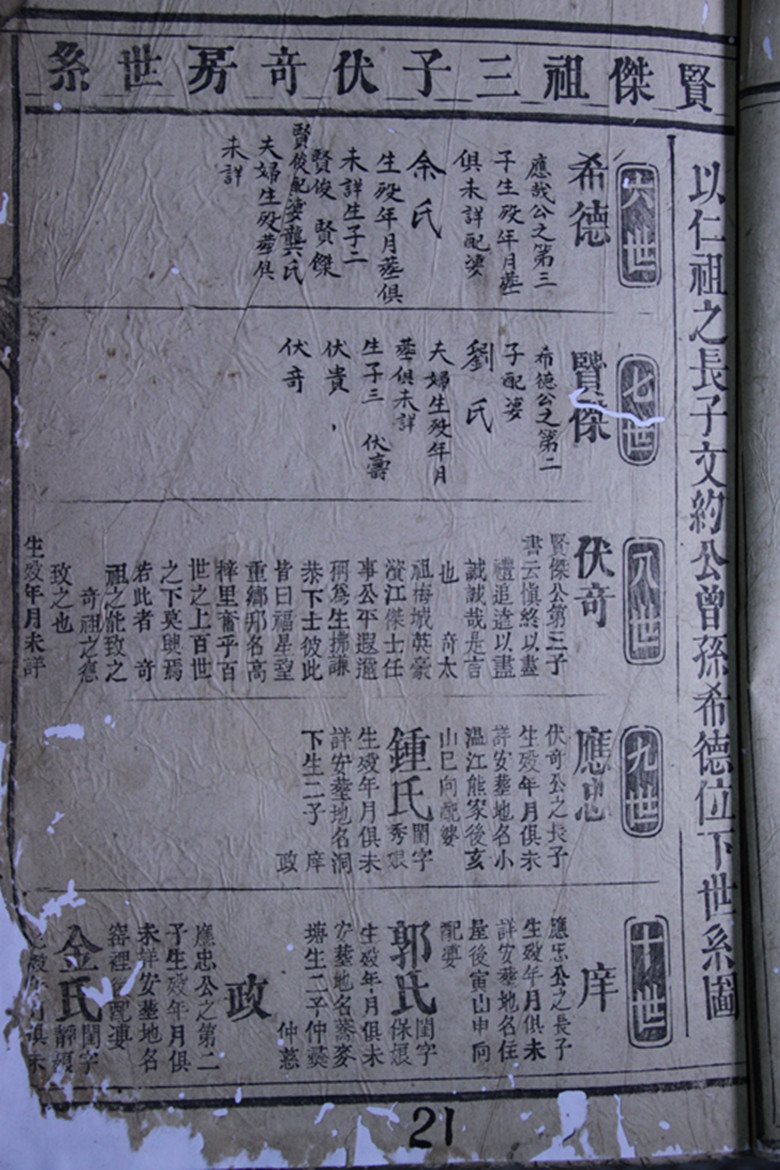 賢傑祖三子伏奇房世系
以仁祖之長子文約公曾孫希德位下世系圖
六世
希德
應哉公之第三
子生歿年月塟
俱未詳配婆
余氏
生歿年月塟俱
未詳生子二
賢俊 賢傑
賢俊配婆龔氏
夫婦生歿塟俱
未詳
七世
賢傑
希德公之第二
子配婆
劉氏
夫婦生歿年月
塟俱未詳
生子三 伏壽
伏貴
伏奇
八世
伏奇
賢傑公第三子
書云愼終以盡
禮追遠以盡
誠誠哉是言
也 奇太
祖梅城英豪
濱江傑士任
事公平遐邇
稱爲生拂謙
恭下士彼此
皆曰福星望
重鄉邦名高
梓里奮乎百
世之上百世
之下莫興焉
若此者 奇
祖之能致之
奇祖之德
致之也
生歿年月未詳
九世
應忠
伏奇公之長子
生歿年月俱未
詳安塟地名小
溫江熊家後亥
山巳向配婆
鍾氏閨字秀娘
生歿年月俱未
詳安塟地名洞
下生二子 庠
政
十世
庠
應忠公之長子
生歿年月俱未
詳安塟地名住
屋後寅山申向
配婆
郭氏閨字保娘
生歿年月俱未
安塟地名蕎麥
塘生二子仲
仲慈
政
應忠公之第二
子生歿年月俱
未詳安塟地名
窰裡 配婆
金氏閨字靜娘
歿年月俱未
21